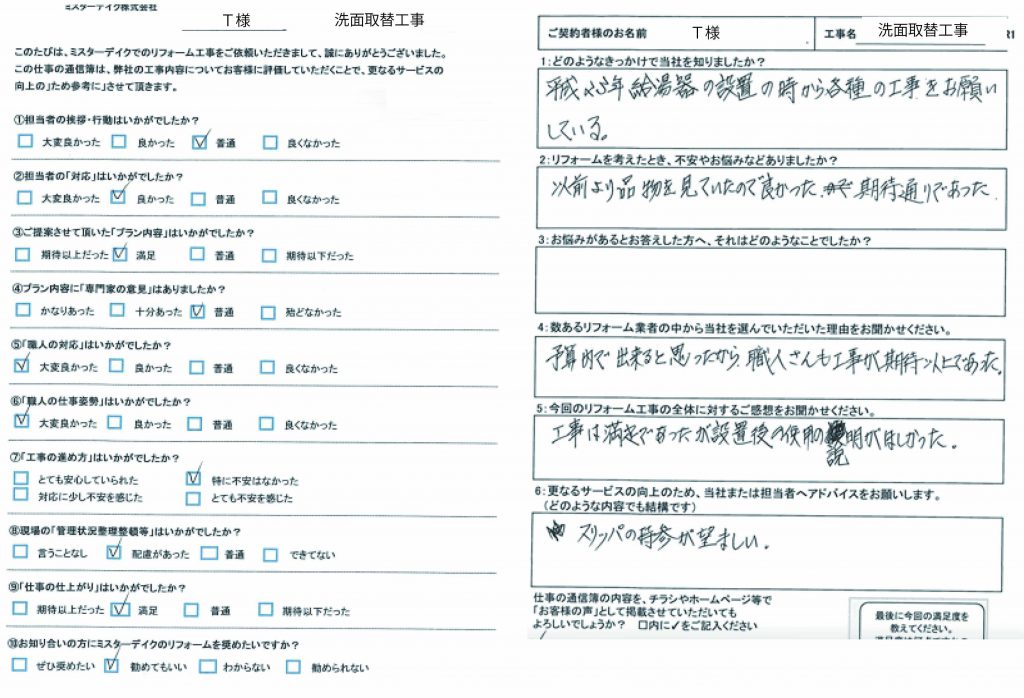 ミスターデイク株式会社
T様 洗面取替工事
このたびは、ミスターデイクでのリフォーム工事をご依頼いただきまして、誠にありがとうございました。
この仕事の通信簿は、弊社の工事内容についてお客様に評価していただくことで、更なるサービスの
向上の」ため参考に」させて頂きます。
①担当者の挨拶・行動はいかがでしたか？
大変良かった 良かった ✓ 普通 良くなかった
②担当者の「対応」はいかがでしたか？
大変良かった ✓ 良かった 普通 良くなかった
③ご提案させて頂いた「プラン内容」はいかがでしたか？
期待以上だった ✓ 満足 普通 期待以下だった
④プラン内容に「専門家の意見」はありましたか？
かなりあった 十分あった ✓ 普通 殆どなかった
⑤「職人の対応」はいかがでしたか？
✓ 大変良かった 良かった 普通 良くなかった
⑥「職人の仕事姿勢」はいかがでしたか？
✓ 大変良かった 良かった 普通 良くなかった
⑦「工事の進め方」はいかがでしたか？
とても安心していられた ✓ 特に不安はなかった
対応に少し不安を感じた とても不安を感じた
⑧現場の「管理状況整理整頓等」はいかがでしたか？
言うことなし ✓ 配慮があった 普通 できてない
⑨「仕事の仕上がり」はいかがでしたか？
期待以上だった ✓ 満足 普通 期待以下だった
⑩お知り合いの方にミスターデイクのリフォームを奨めたいですか？
ぜひ奨めたい ✓ 勧めてもいい わからない 勧められない
ご契約者様のお名前 T様 工事名 洗面取替工事 R1
1：どのようなきっかけで当社を知りましたか？
平成25年給湯器の設置の時から各種の工事をお願い
している。
2：リフォームを考えたとき、不安やお悩みなどありましたか？
以前より品物を見ていたので良かった。期待通りであった。
3：お悩みがあるとお答えした方へ、それはどのようなことでしたか？
4：数あるリフォーム業者の中から当社を選んでいただいた理由をお聞かせください。
予算内で出来ると思ったから。職人さんも工事が期待以上であった。
5：今回のリフォーム工事の全体に対するご感想をお聞かせください。
工事は満足であったが設置後の使用の説明がほしかった。
6：更なるサービスの向上のため、当社または担当者へアドバイスをお願いします。
（どのような内容でも結構です）
スリッパの持参が望ましい。
仕事の通信簿の内容を、チラシやホームページ等で
「お客様の声」として掲載させていただいても
よろしいでしょうか？ 口内に✓をご記入ください
最後に今回の満足度を
教えてください。